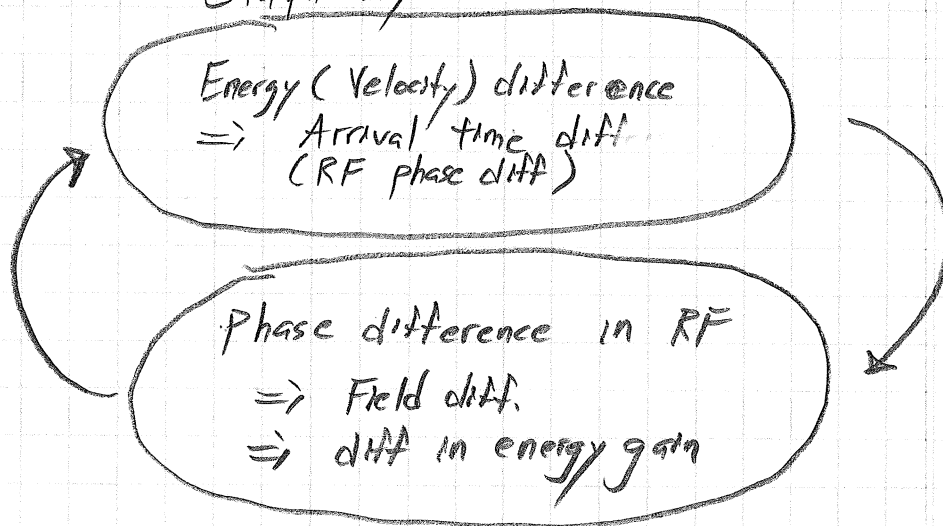 Energy (Velocity) difference
=> Arrival time diff
(RF phase diff)
Phase difference in RF
=> Field diff.
=> diff in energy gain